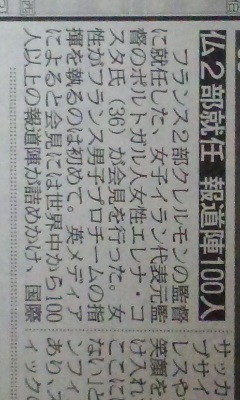 仏2部就任 報道陣100人
フランス2部クレルモンの監督
に就任した、女子イラン代表元監
督のポルトガル人女性エレナ・コ
スタ氏（36）が会見を行った。女
性がフランス男子プロチームの指
揮を執るのは初めて。英メディア
によると会見には世界中から100
人以上の報道陣が詰めかけ、国際
サッカ
ブサイ
レスや
笑顔を
け入れ
ここに
ない」と
ンフィ
あり、
ィックの